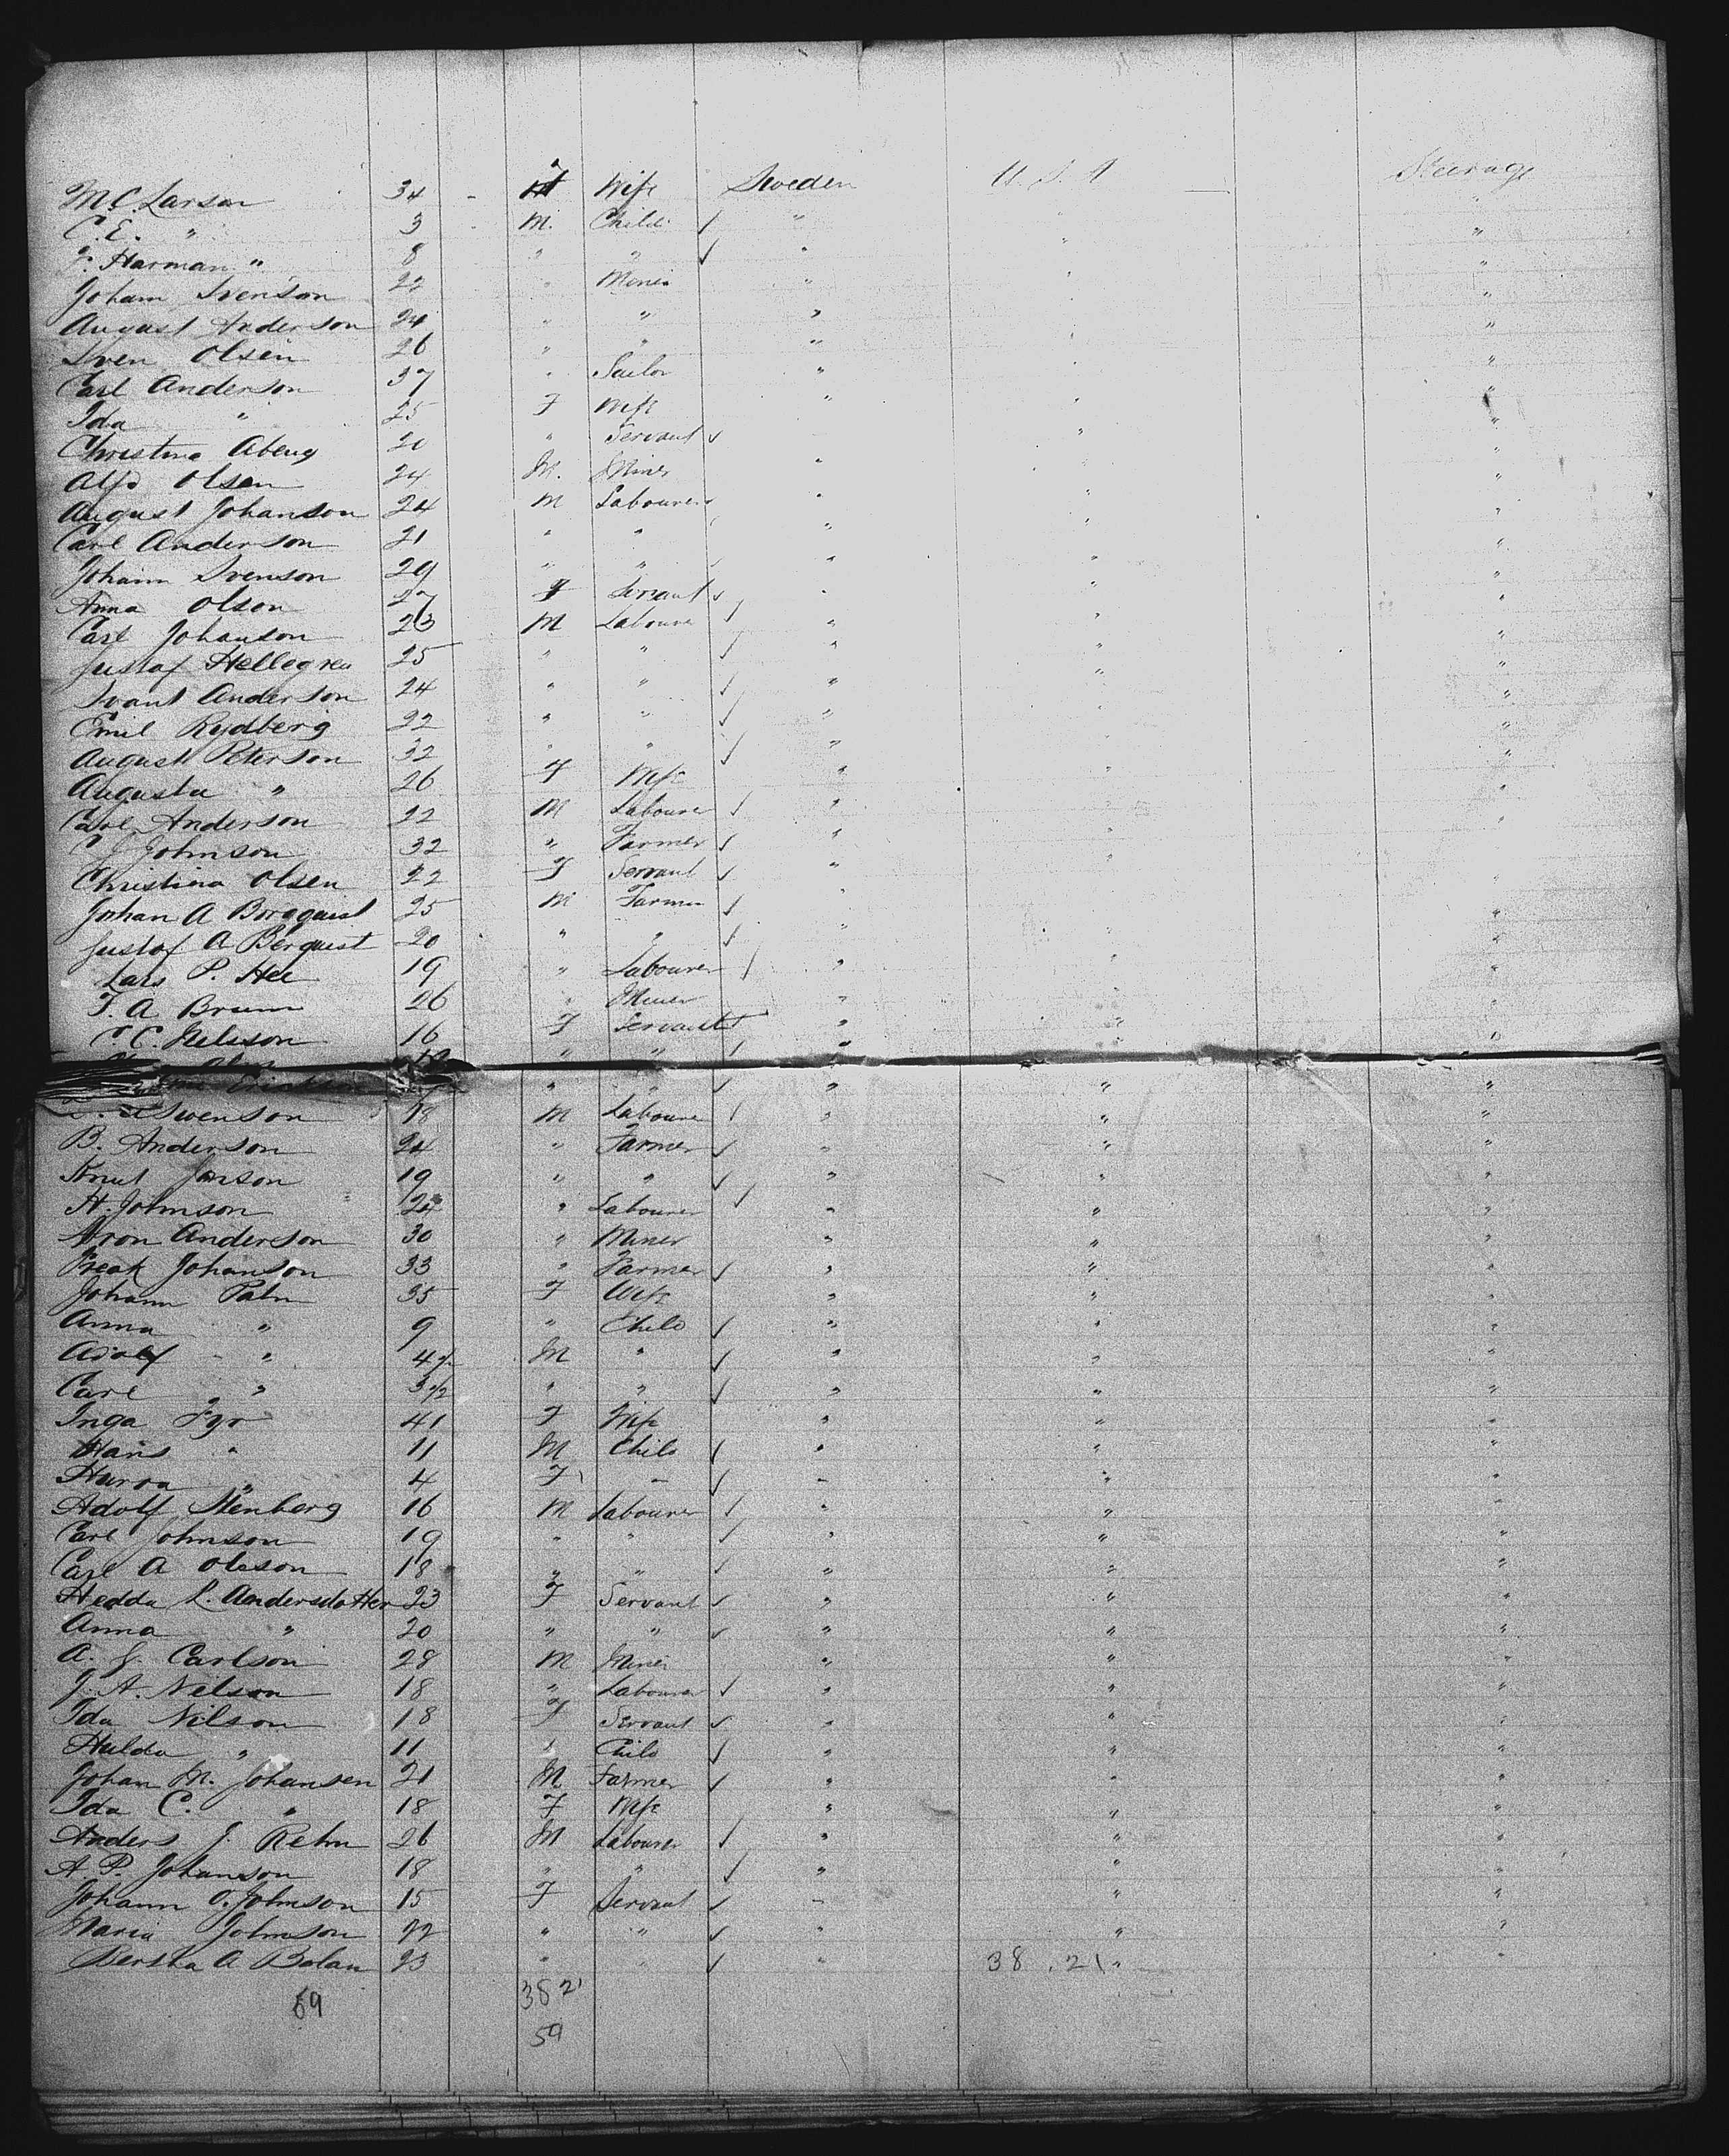 M.C. Larson 34 - F Wife Sweden U.S.A Steerage
C.E. " 3 M. Child ✓ " " "
F. Harman " 8 " " ✓ " " "
Johann Svenson 22 " Miner " " "
August Anderson 24 " " " "
Sven Olsen 26 " " " "
Carl Anderson 37 " Sailor " " "
Ida " 25 F Wife " " "
Christina Abeng 20 " Servant ✓ " "
Alfd Olsen 24 M. Miner " " "
August Johanson 24 M Labourer " " "
Carl Anderson 21 " " " " "
Johann Svenson 29 " " ✓ " " "
Anna Olson 27 F Servant ✓ " " "
Carl Johanson 23 M Laboure ✓ " " "
Gustaf Hellegren 25 " " ✓ " " "
Svant Anderson 24 " " ✓ " " "
Emil Rydberg 22 " " ✓ " " "
August Peterson 32 " " ✓ " " "
Augusta " 26 F Wife " " "
Carl Anderson 22 M Labourer ✓ " " "
C J Johnson 32 " Farmer ✓ " " "
Christina Olsen 22 F Servant ✓ " " "
Johan A Borgquist 25 M Farmer ✓ " " "
Gustof A Berquist 20 " " ✓ " " "
Lars P. 19 " Labourer ✓ " " "
F. A. Brunn 26 " Miner " " "
C. C. Nelsson 16 F Servant ✓ " " "
" " ✓ "
" " ✓ " " "
Swenson 18 M Laboure ✓ " " "
B. Anderson 24 " Farmer ✓ " " "
Knut Janson 19 " " ✓ " " "
H. Johnson 24 " Labourer ✓ " " "
Aron Anderson 30 " Miner " " "
Johanson 33 " Farmer ✓ " " "
Johann Palm 35 F Wife " " "
Anna " 9 " Child ✓ " " "
Adolf - " 4 1/2 M " ✓ " " "
Carl " 3 1/2 " " ✓ " " "
Inga Fyr 41 F Wife " " "
Hans " 11 M Child ✓ " " "
" 4 F " ✓ " " "
Adolf Stenberg 16 M Labourer ✓ " " "
Carl Johnson 19 " " ✓ " " "
Carl A Oleson 18 " " ✓ " " "
Hedda L. Andersdotter 23 F Servant ✓ " " "
Anna " 20 " " ✓ " " "
A. G. Carlson 28 M Miner " " "
J. A. Nelson 18 " Labourer ✓ " " "
Ida Nilson 18 F Servant ✓ " " "
Hulda " 11 " Child ✓ " " "
Johan M. Johansen 21 M Farmer ✓ " " "
Ida C. " 18 F Wife " " "
Anders J. Rehn 26 M Labourer ✓ " " "
A. P. Johanson 18 " " ✓ " " "
Johann O. Johnson 15 F Servant ✓ " " "
Maria Johnson 22 " " ✓ " " "
Bertha A Bolan 23 " " ✓ " 38 . 21 " "
59 38 21
59